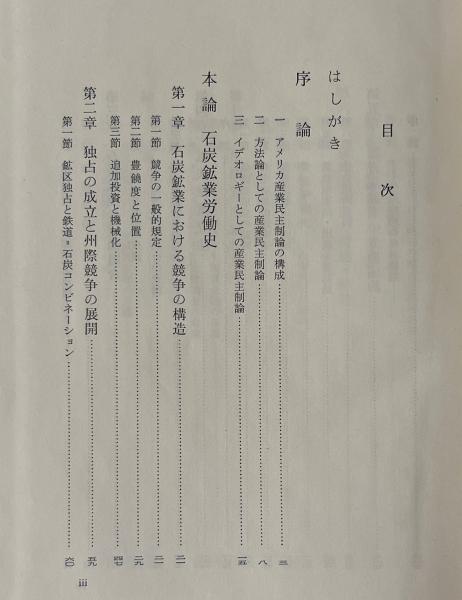 目次
はしがき
序論
一 アメリカ産業民主制論の構成 三
二 方法論としての産業民主制論 八
三 イデオロギーとしての産業民主制論 一五
本論 石炭鉱業労働史
第一章 石炭鉱業における競争の構造 二一
第一節 競争の一般的規定 二一
第二節 豊饒度と位置 二九
第三節 追加投資と機械化 四七
第二章 独占の成立と州際競争の展開 五九
第一節 鉱区独占と鉄道=石炭コンビネーション 六〇
iii